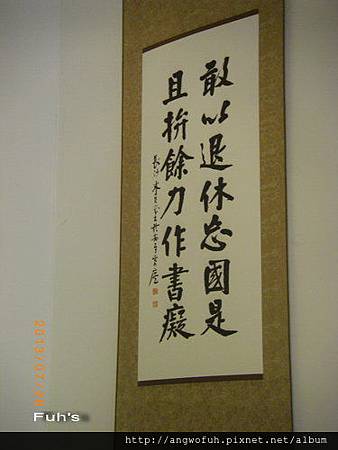 敢以退休忘國是
且拚餘力作書癡
2013/07/28
Fuh's
http://angwofuh.pixnet.net/album